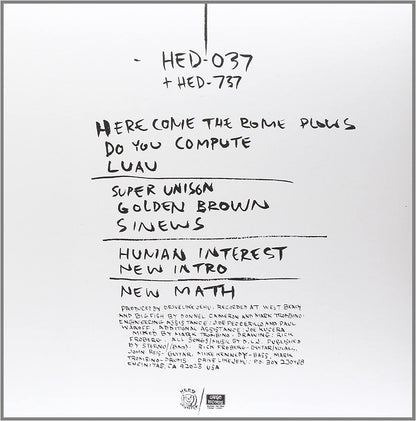 - HED-037
+ HED-737
HERE COME THE ROME PLOWS
DO YOU COMPUTE
LUAU
SUPER UNISON
GOLDEN BROWN
SINEWS
HUMAN INTEREST
NEW INTRO
NEW MATH
PRODUCED BY DRIVE LIKE JEHU. RECORDED AT WEST BEACH
AND BIG FISH BY DONNEL CAMERON AND MARK TROMBINO.
ENGINEERING ASSISTANCE: JOE PECCERILLO AND PAUL
WAROFF. ADDITIONAL ASSISTANCE: JOE KUCERA
MIXED BY MARK TROMBINO - DRAWING: RICK
FROBERG. ALL SONGS/MUSIC BY D.L.J. PUBLISHED
BY STERNO/(BMI). RICK FROBERG - GUITAR/VOCAL,
JOHN REIS - GUITAR, MIKE KENNEDY - BASS, MARK
TROMBINO - DRUMS. DRIVE LIKE JEHU: PO BOX 230188
ENCINITAS, CA 92023 USA
HEED